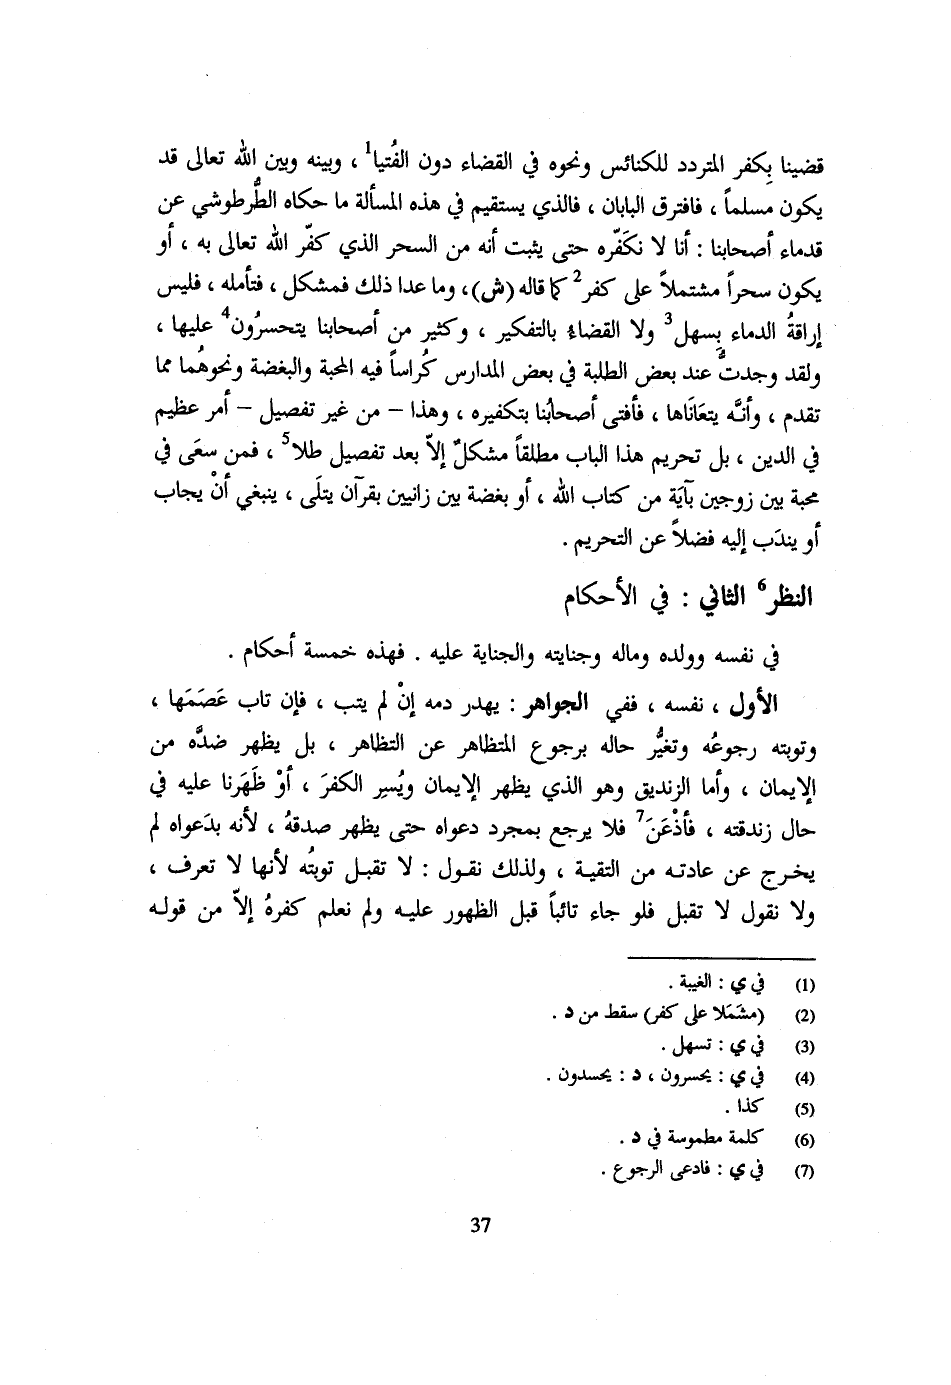 قضينا بكفر المتردد للكنائس ونحوه في القضاء دون الفُتيا1 ، وبينه وبين الله تعالى قد
يكون مسلماً ، فافترق البابان ، فالذي يستقيم في هذه المسألة ما حكاه الطُّرطوشي عن
قدماء أصحابنا : أنا لا نكَفّره حتى يثبت أنه من السحر الذي كفّر الله تعالى به ، أو
يكون سحراً مشتملاً على كفر2 كما قاله (ش)، وما عدا ذلك فمشكل ، فتأمله ، فليس
إراقةُ الدماء بِسهل3 ولا القضاءُ بالتفكير ، وكثير من أصحابنا يتحسرُون4 عليها ،
ولقد وجدتُ عند بعض الطلبة في بعض المدارس كُراساً فيه المحبة والبغضة ونحوهُما مما
تقدم ، وأنَّه يتعَانَاها ، فأفتى أصحابُنا بتكفيره ، وهذا – من غير تفصيل – أمر عظيم
في الدين ، بل تحريم هذا الباب مطلقاً مشكلٌ إلاّ بعد تفصيل طلا5 ، فمن سعَى في
محبة بين زوجين بآيَة من كتاب الله ، أو بغضة بين زانيين بقرآن يتلَى ، ينبغي أنْ يجاب
أو يندَب إليه فضلاً عن التحريم .
النظر6 الثاني : في الأحكام
في نفسه وولده وماله وجنايته والجناية عليه . فهذه خمسة أحكام .
الأول ، نفسه ، ففي الجواهر : يهدر دمه إنْ لم يتب ، فإن تاب عَصَمَها ،
وتوبته رجوعُه وتغيُّر حاله برجوع المتظاهر عن التظاهر ، بل يظهر ضدَّه من
الإيمان ، وأما الزنديق وهو الذي يظهر الإيمان ويُسِر الكفرَ ، أوْ ظَهَرنا عليه في
حال زندقته ، فأذْعَنَ7 فلا يرجع بمجرد دعواه حتى يظهر صدقهُ ، لأنه بدَعواه لم
يخرج عن عادته من التقية ، ولذلك نقول : لا تقبل توبتُه لأنها لا تعرف ،
ولا نقول لا تقبل فلو جاء تائباً قبل الظهور عليه ولم نعلم كفرهُ إلاّ من قوله
(1) في ي : الغيبة .
(2) (مشَمَلا على كفر) سقط من د .
(3) في ي : تسهل .
(4) في ي : يحسرون ، د : يحسدون .
(5) كذا .
(6) كلمة مطموسة في د .
(7) في ي : فادعى الرجوع .
37